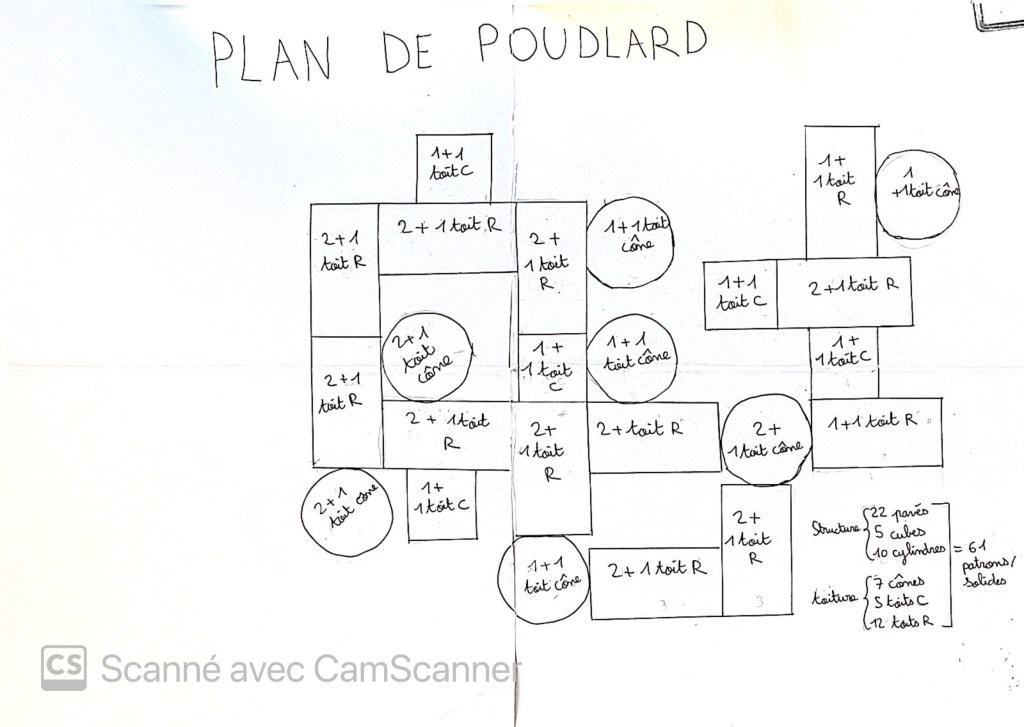 PLAN DE POUDLARD
1+1
toit C
1+
1 toit
R
1
+1 toit cône
2+1
toit R
2+1 toit R
2+
1 toit
R
1+1 toit
cône
1+1
toit C
2+1 toit R
2+1
toit
cône
1+
1 toit
C
1+1
toit cône
1+
1 toit C
2+1
toit R
2+1 toit
R
2+
1 toit
R
2+toit R
2+
1 toit cône
1+1 toit R
2+1
toit cône
1+
1 toit C
1+1
toit cône
2+1 toit R
3
2+
1 toit
R
3
Structure
22 pavés
5 cubes
10 cylindres
toiture
7 cônes
5 toits C
12 toits R
= 61
patrons/
solides
CS Scanné avec CamScanner